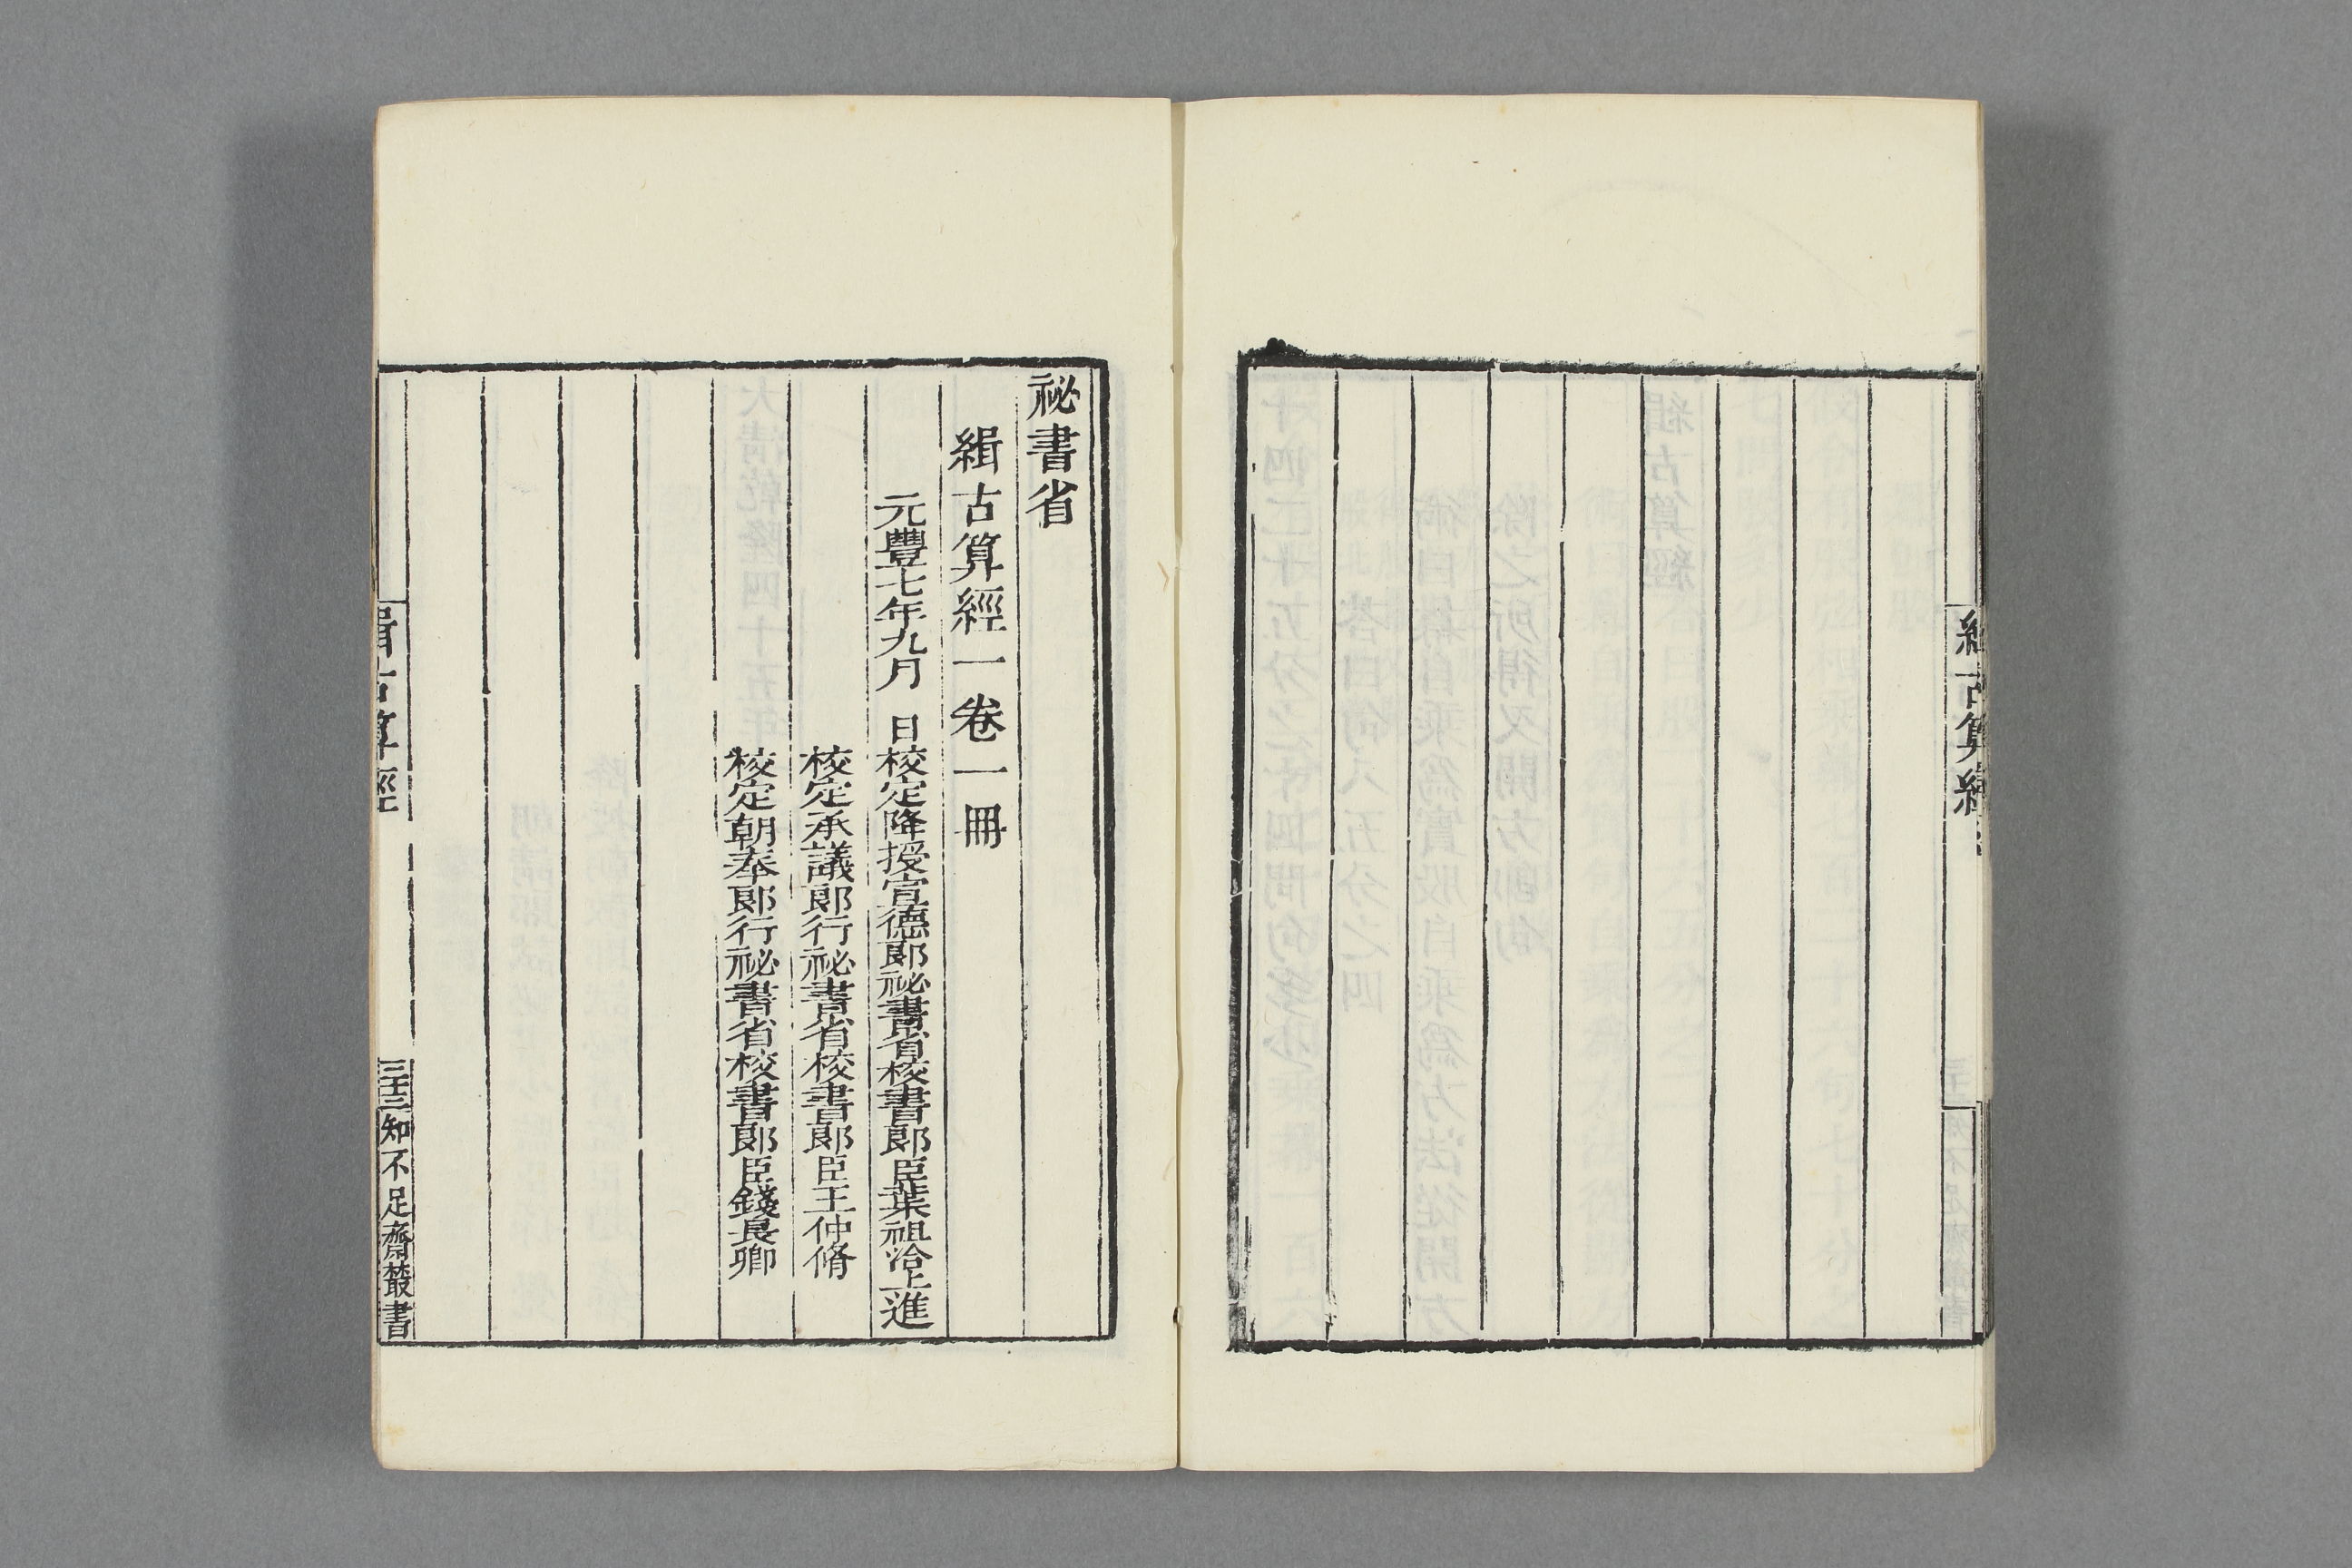 緝古算經
祕書省
緝古算經一卷一冊
元豐七年九月　日校定降授宣德郎祕書省校書郎臣葉祖洽上進
校定承議郎行祕書省校書郎臣王仲脩
校定朝奉郎行祕書省校書郎臣錢長卿
緝古算經
知不足齋叢書